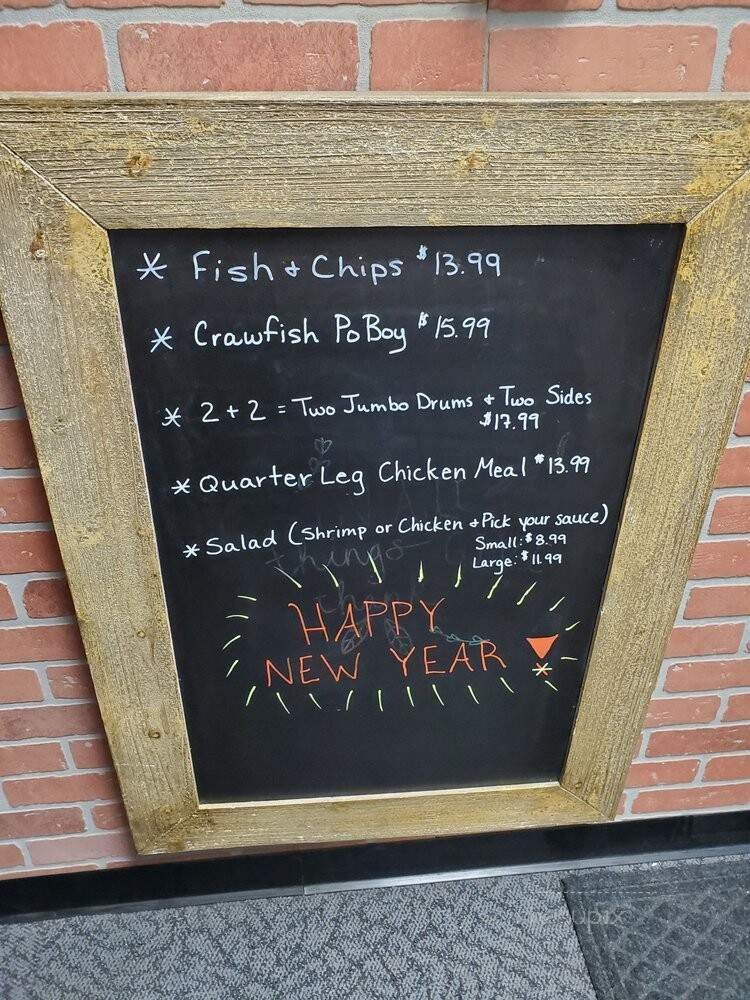 * Fish & Chips $13.99
* Crawfish Po Boy $15.99
* 2 + 2 = Two Jumbo Drums & Two Sides
$17.99
* Quarter Leg Chicken Meal $13.99
* Salad (Shrimp or Chicken & Pick your sauce)
Small: $8.99
Large: $11.99
things
HAPPY
NEW YEAR!